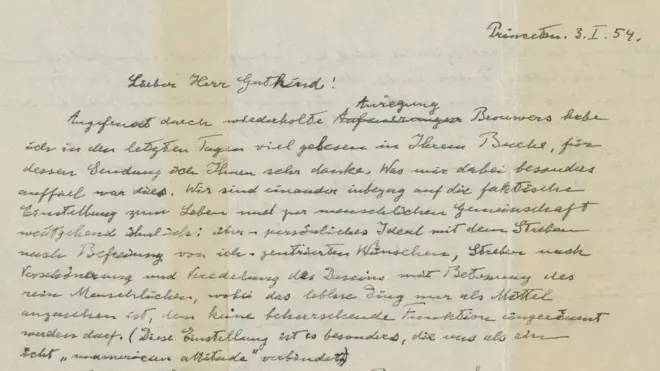 Princeton. 3. I. 54.
Lieber Herr Gutkind!
Anregung
Angefeuert durch wiederholte Brouwers habe
ich in den letzten Tagen viel gelesen in Ihrem Buche, für
dessen Sendung ich Ihnen sehr danke. Was mir dabei besonders
auffiel war dies. Wir sind einander inbezug auf die faktische
Einstellung zum Leben und zur menschlichen Gemeinschaft
weitgehend ähnlich: persönliches Ideal mit dem Streben
nach Befreiung von ich-zentrierten Wünschen, Streben nach
Verschönerung und Veredelung des Daseins mit Betonung des
rein Menschlichen, wobei das leblose Ding nur als Mittel
anzusehen ist, dem keine beherrschende Funktion eingeräumt
werden darf. (Diese Einstellung ist es besonders, die uns als ein
echt „unamerican attitude" verbindet)